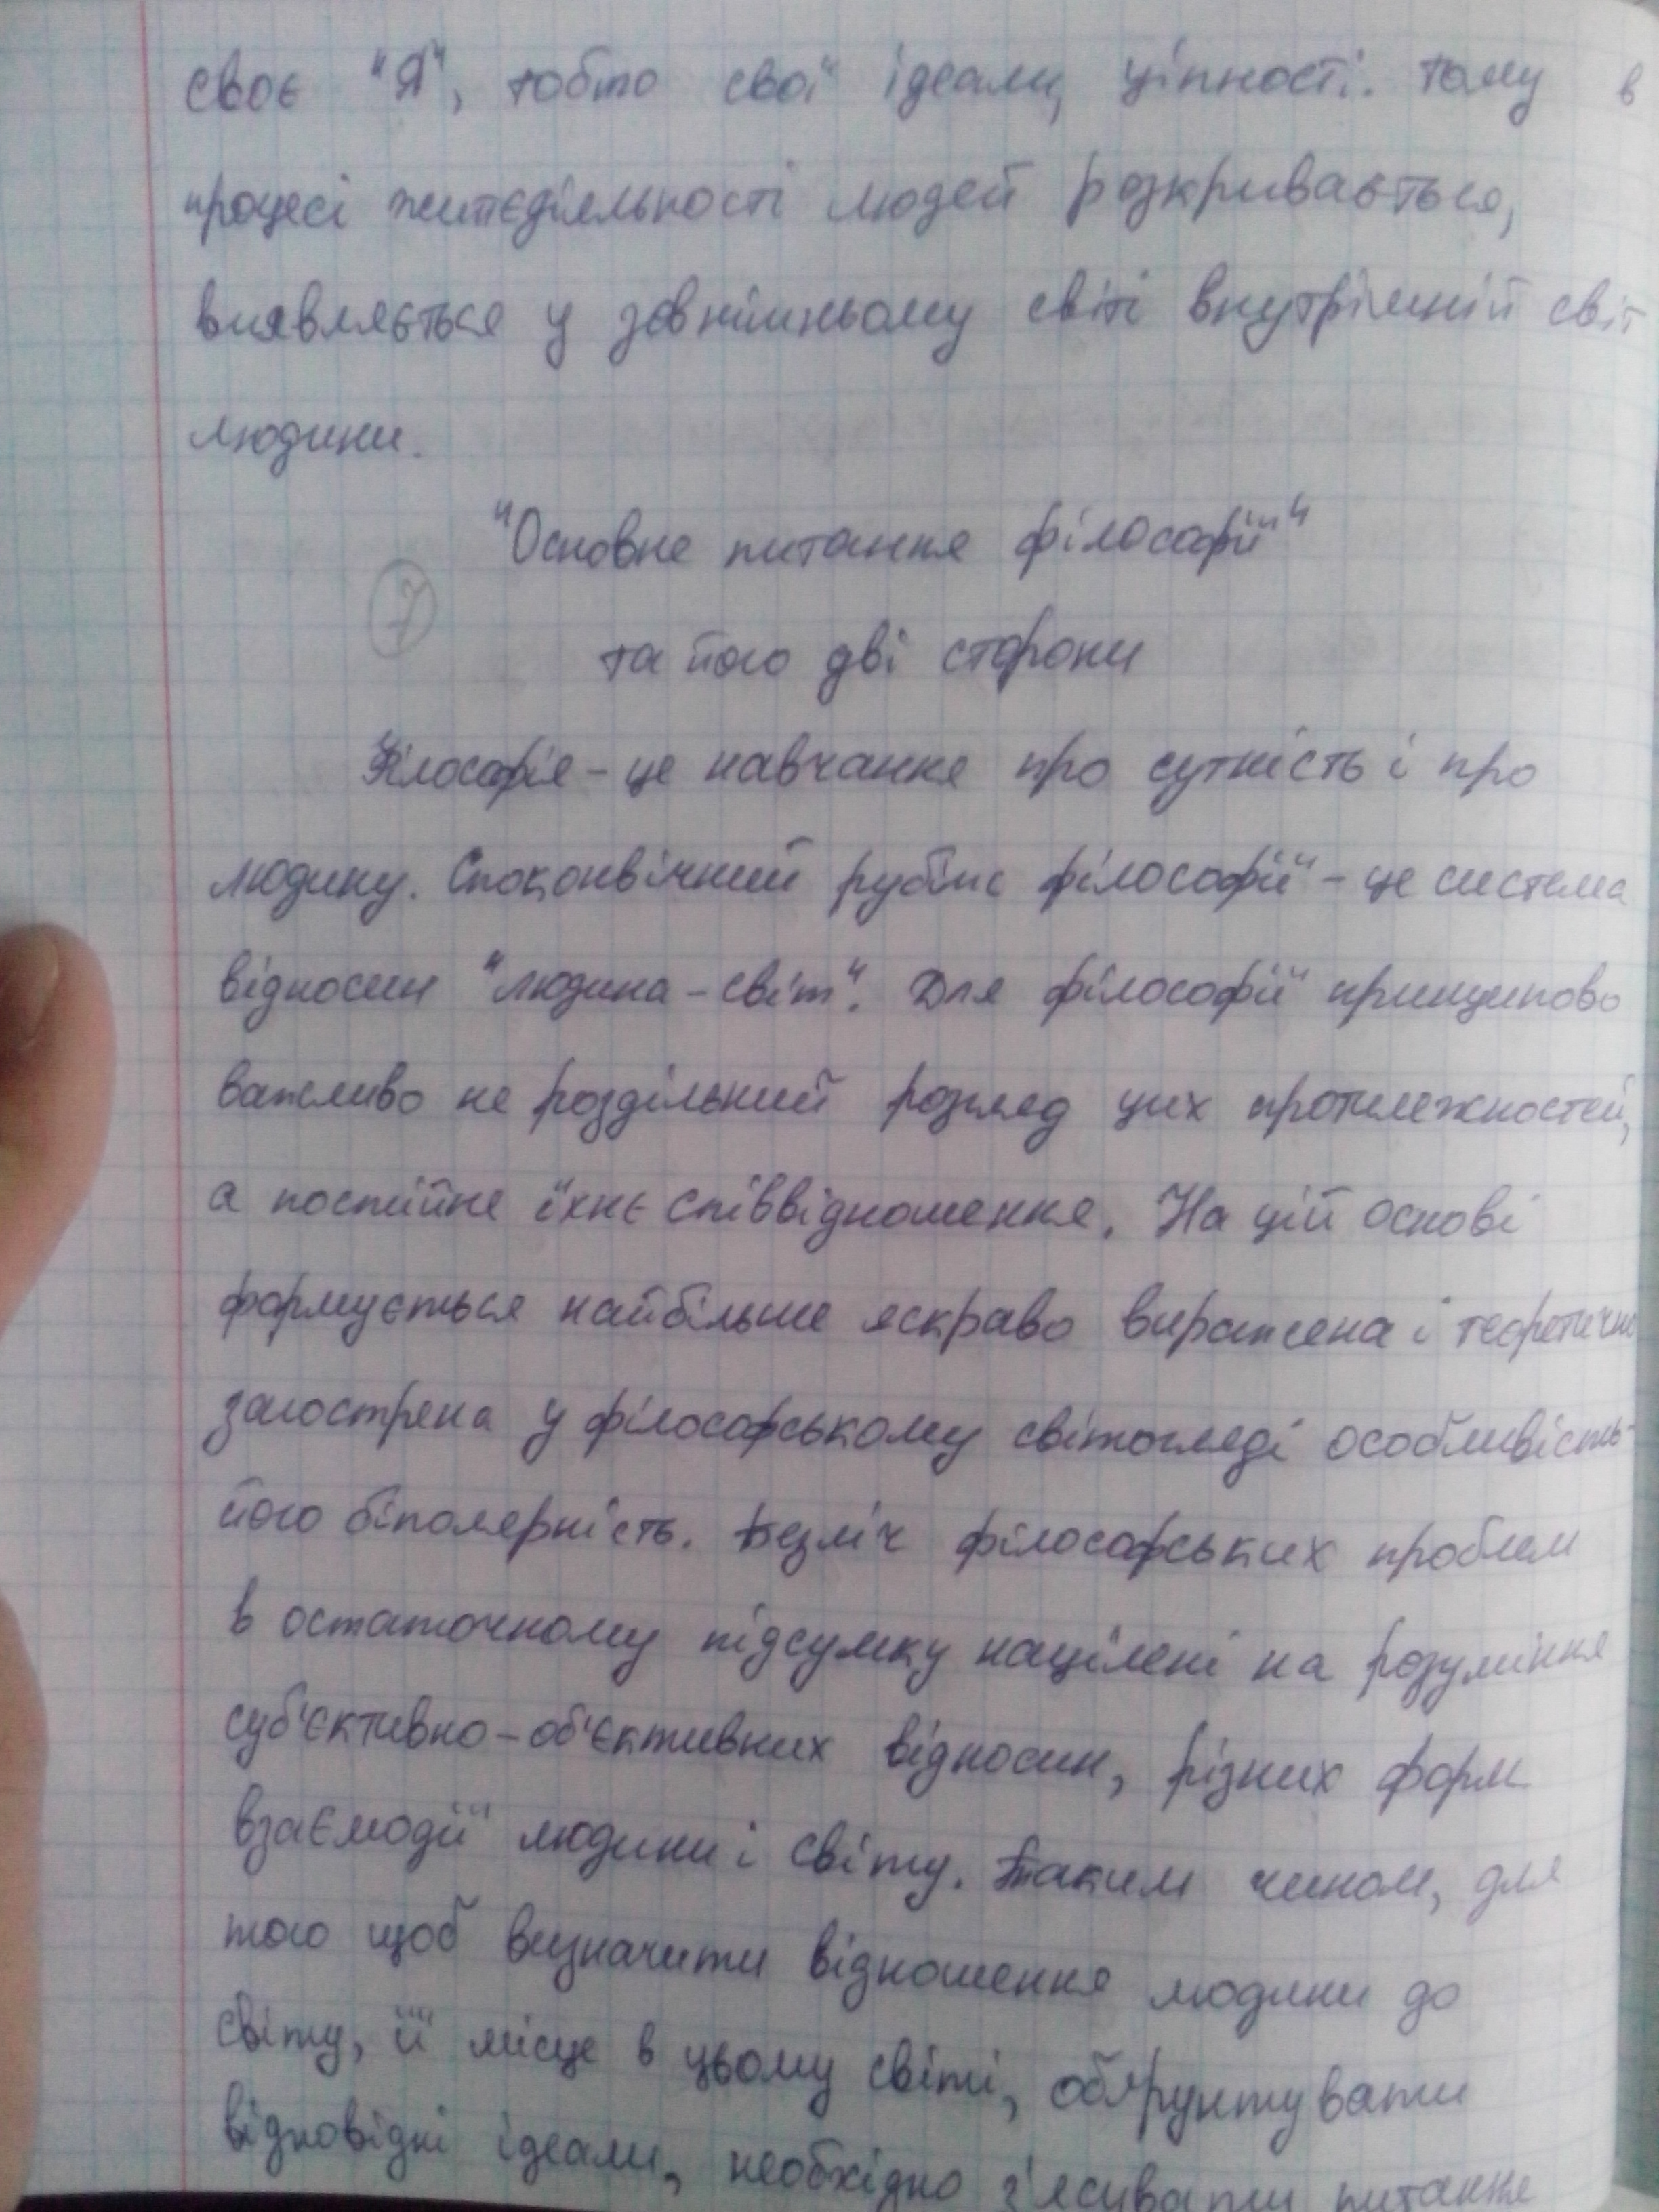 своє "Я", тобто свої ідеали, цінності. тому в
процесі житєдіяльності людей розкривається,
виявляється у зовнішньому світі внутрішній світ
людини.
"Основне питання філософії"
7
та його дві сторони
Філософія - це навчання про сутність і про
людину. Споконвічний рубіж філософії - це система
відносин "людина - світ". Для філософії принципово
важливо не роздільний розгляд цих протилежностей,
а постійне їхнє співвідношення. На цій основі
формується найбільше яскраво виражена і теоретично
загострена у філософському світогляді особливість -
його біполярність. Безліч філософських проблем
в остаточному підсумку націлені на розуміння
суб'єктивно-об'єктивних відносин, різних форм
взаємодії людини і світу. Таким чином, для
того щоб визначити відношення людини до
світу, її місце в цьому світі, обґрунтувати
відповідні ідеали, необхідно з'ясувати питання